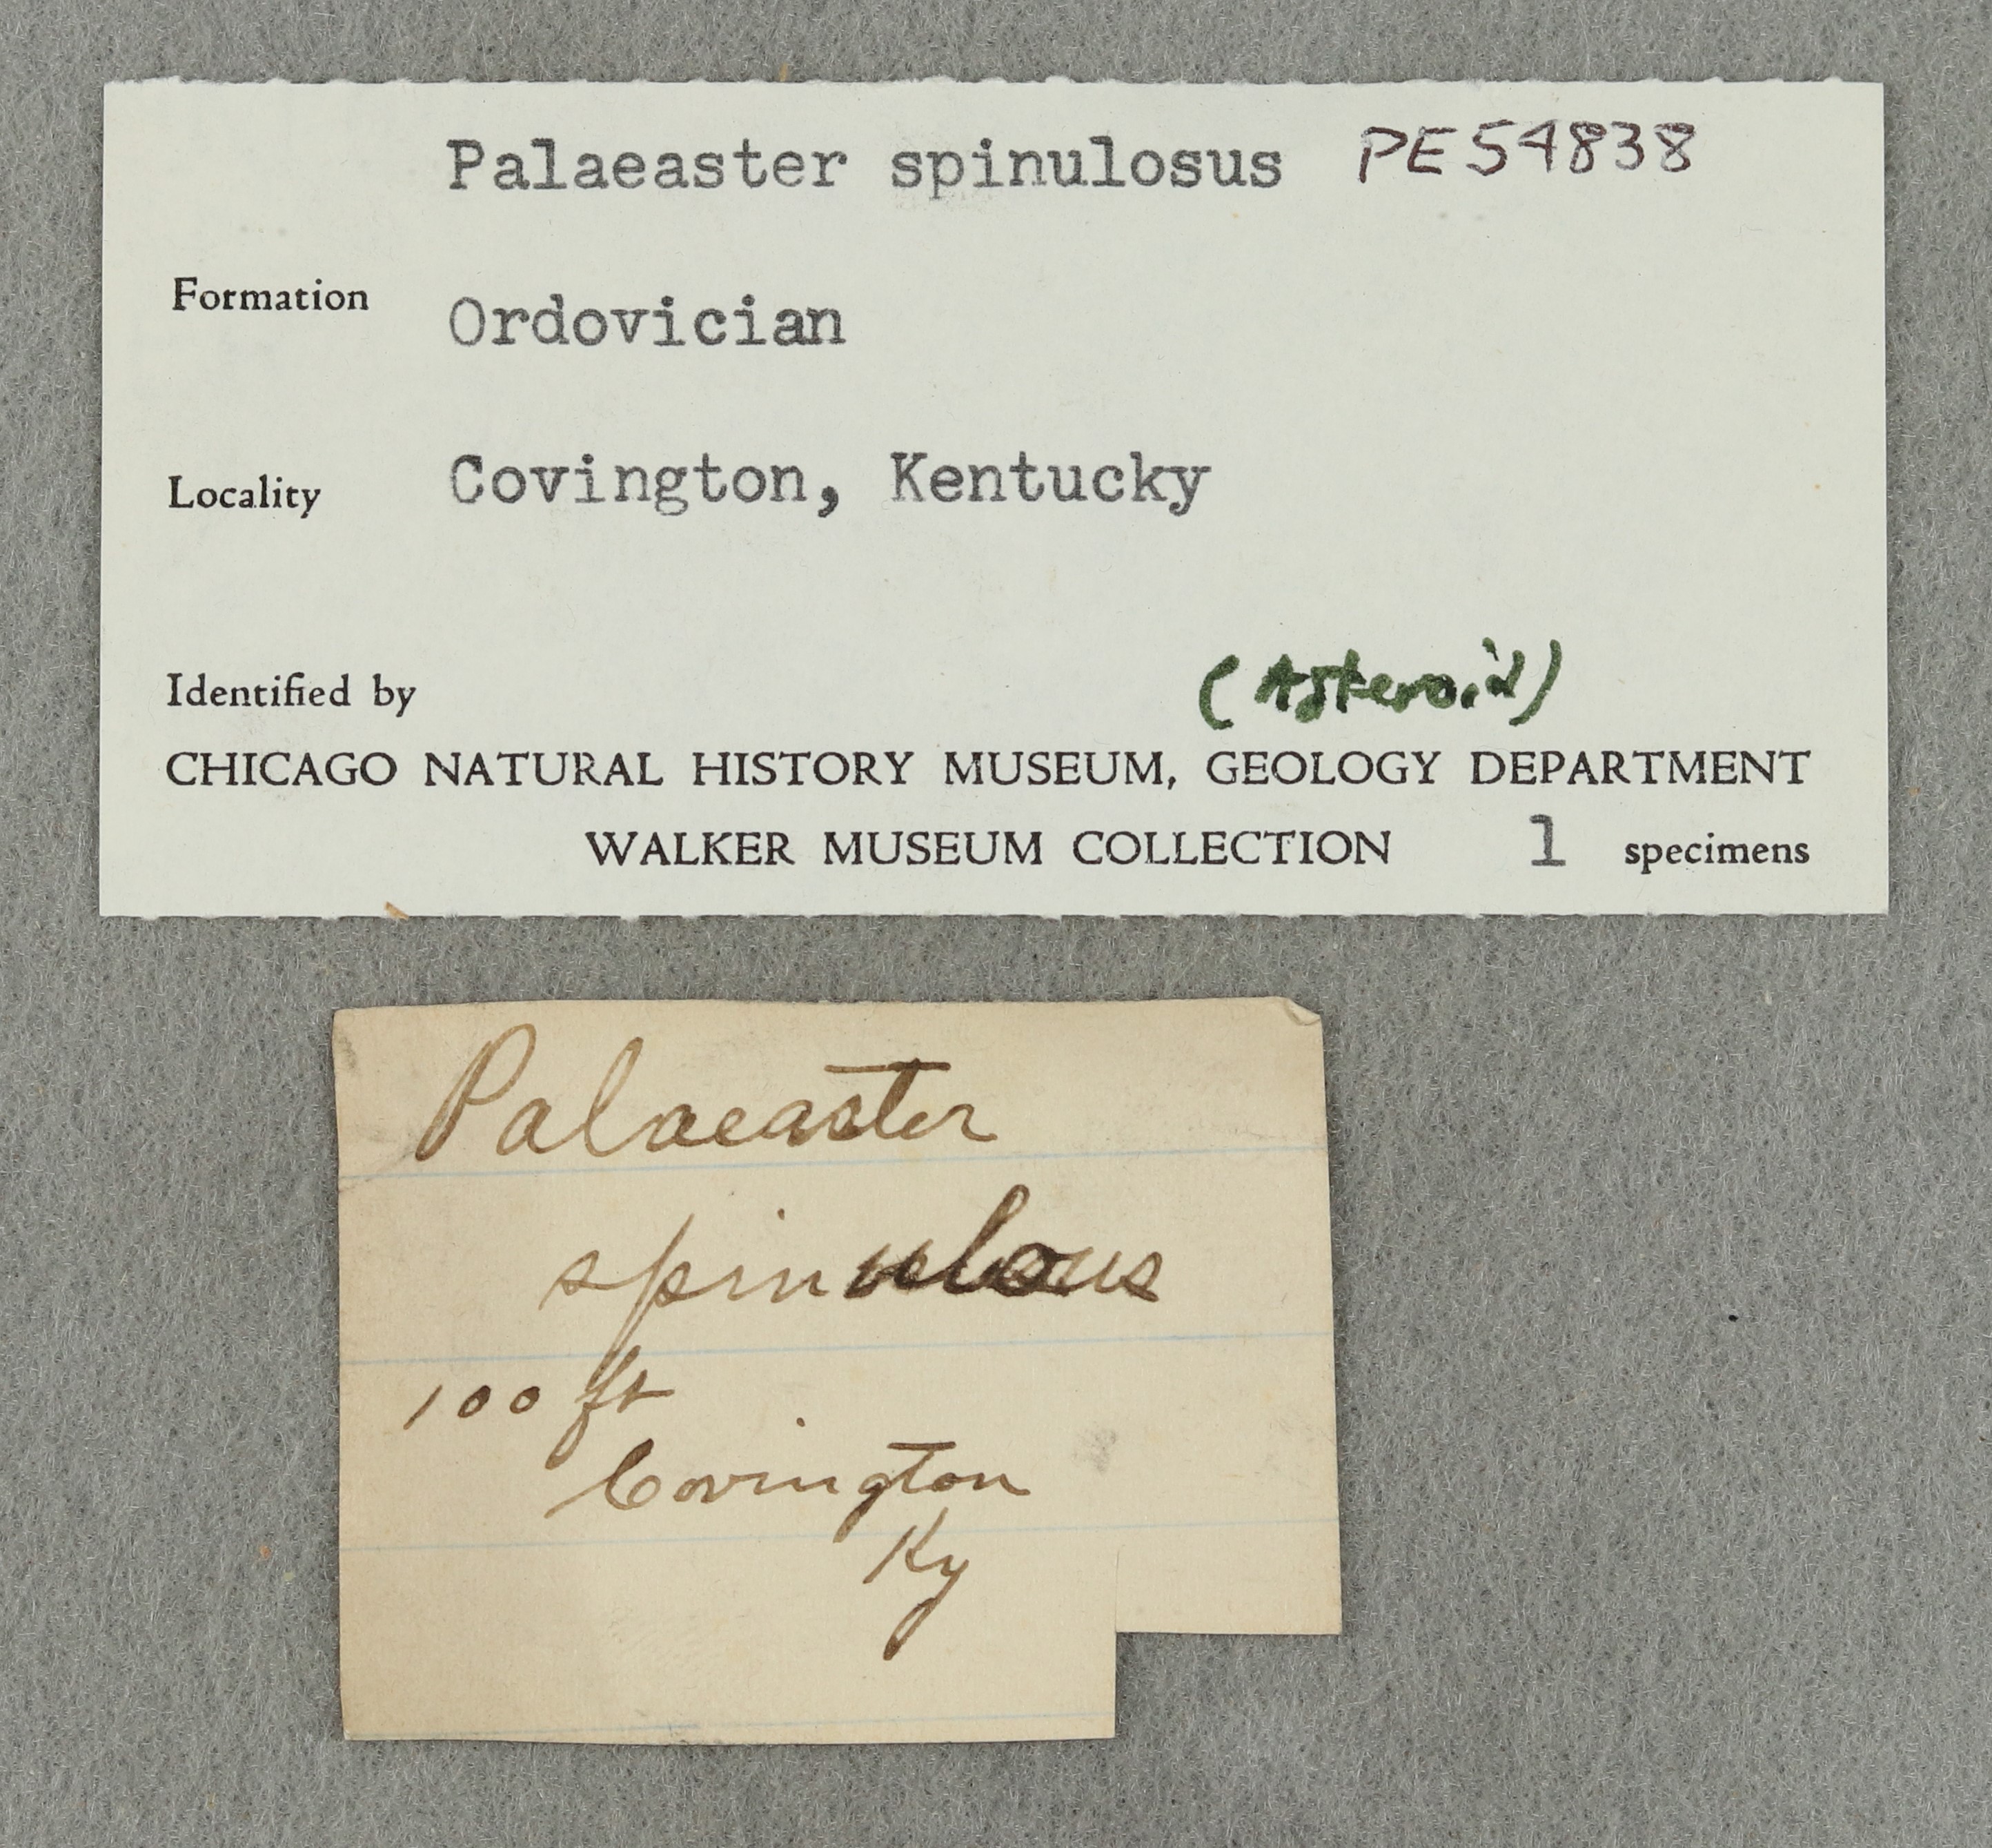 Palaeaster spinulosus PE54838
Formation Ordovician
Locality Covington, Kentucky
(Asteroid)
Identified by
CHICAGO NATURAL HISTORY MUSEUM, GEOLOGY DEPARTMENT
WALKER MUSEUM COLLECTION 1 specimens
Palaeaster
spinulous
100 ft
Covington
Ky